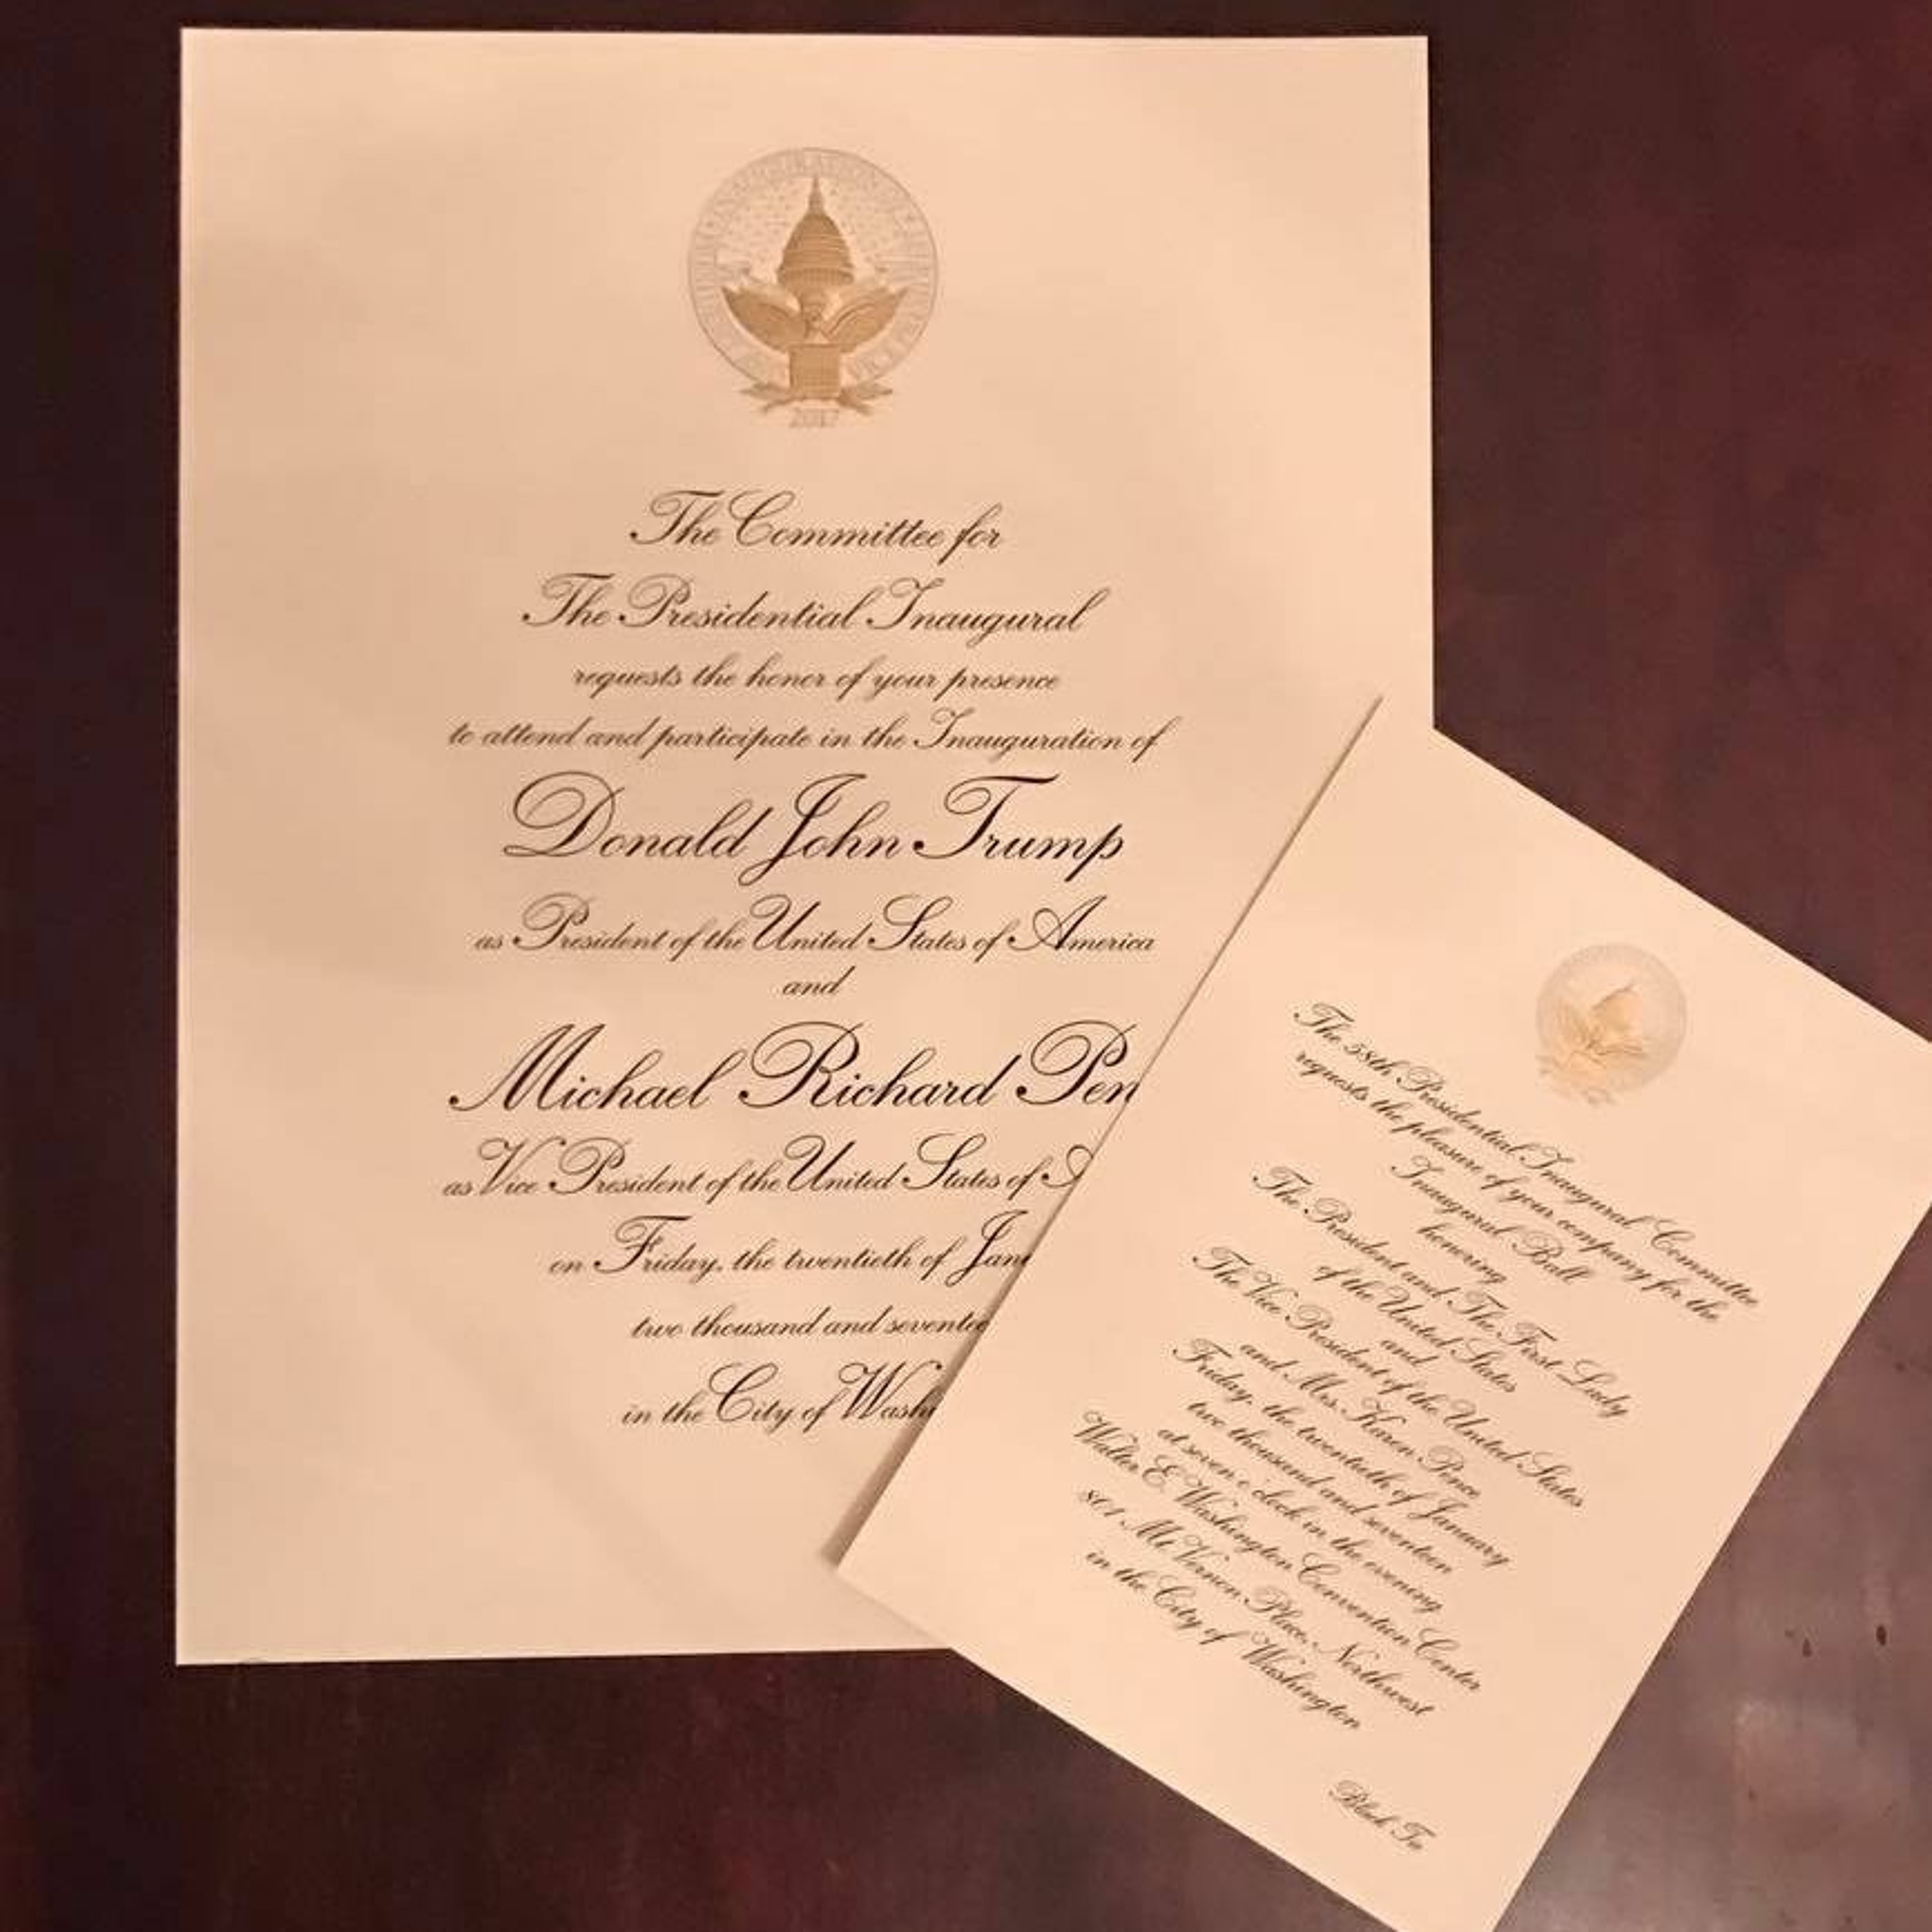 2017
The Committee for
The Presidential Inaugural
requests the honor of your presence
to attend and participate in the Inauguration of
Donald John Trump
as President of the United States of America
and
Michael Richard Pen
as Vice President of the United States of
on Friday, the twentieth of Jan
two thousand and sevente
in the City of Wash
The 58th Presidential Inaugural Committee
requests the pleasure of your company for the
Inaugural Ball
honoring
The President and The First Lady
of the United States
and
The Vice President of the United States
and Mrs. Karen Pence
Friday, the twentieth of January
two thousand and seventeen
at seven o'clock in the evening
Walter E. Washington Convention Center
801 Mt Vernon Place, Northwest
in the City of Washington
Black Tie